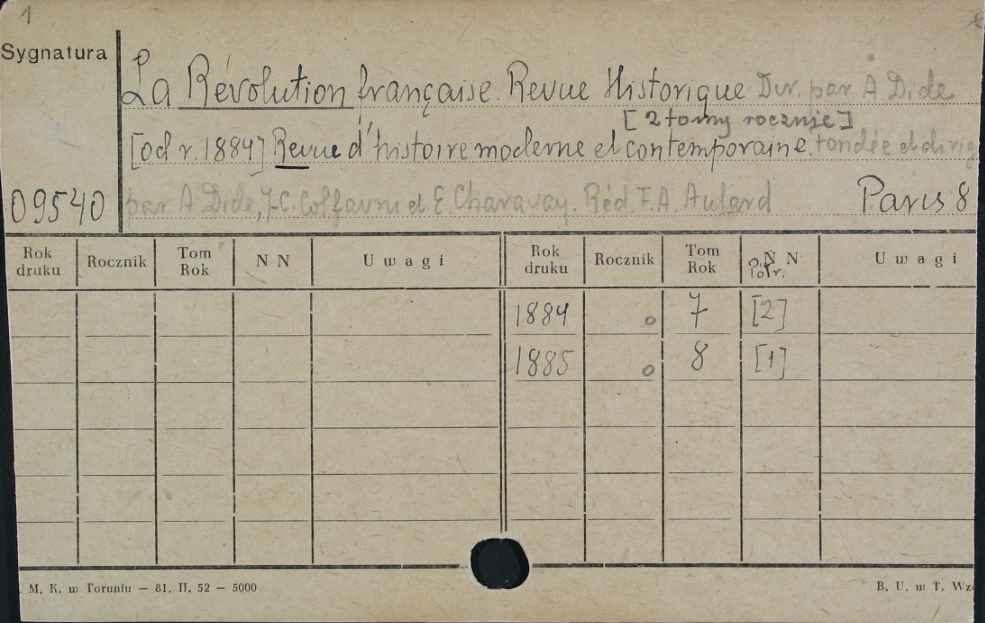 1
Sygnatura
La Révolution française. Revue Historique Dir. par A. Dide
[2 tomy rocznie]
[od r. 1884] Revue d'histoire moderne et contemporaine. fondée et dirig
09540 par A. Dide, J-C. Colfavru et E. Charavay. Réd. F.A. Aulard Paris 8
Rok druku Rocznik Tom Rok N N U w a g i Rok druku Rocznik Tom Rok N N U w a g i
1884 o 7 [2]
1885 o 8 [1]
M. K. w Toruniu — 81. II. 52 — 5000 B. U. w T. Wz